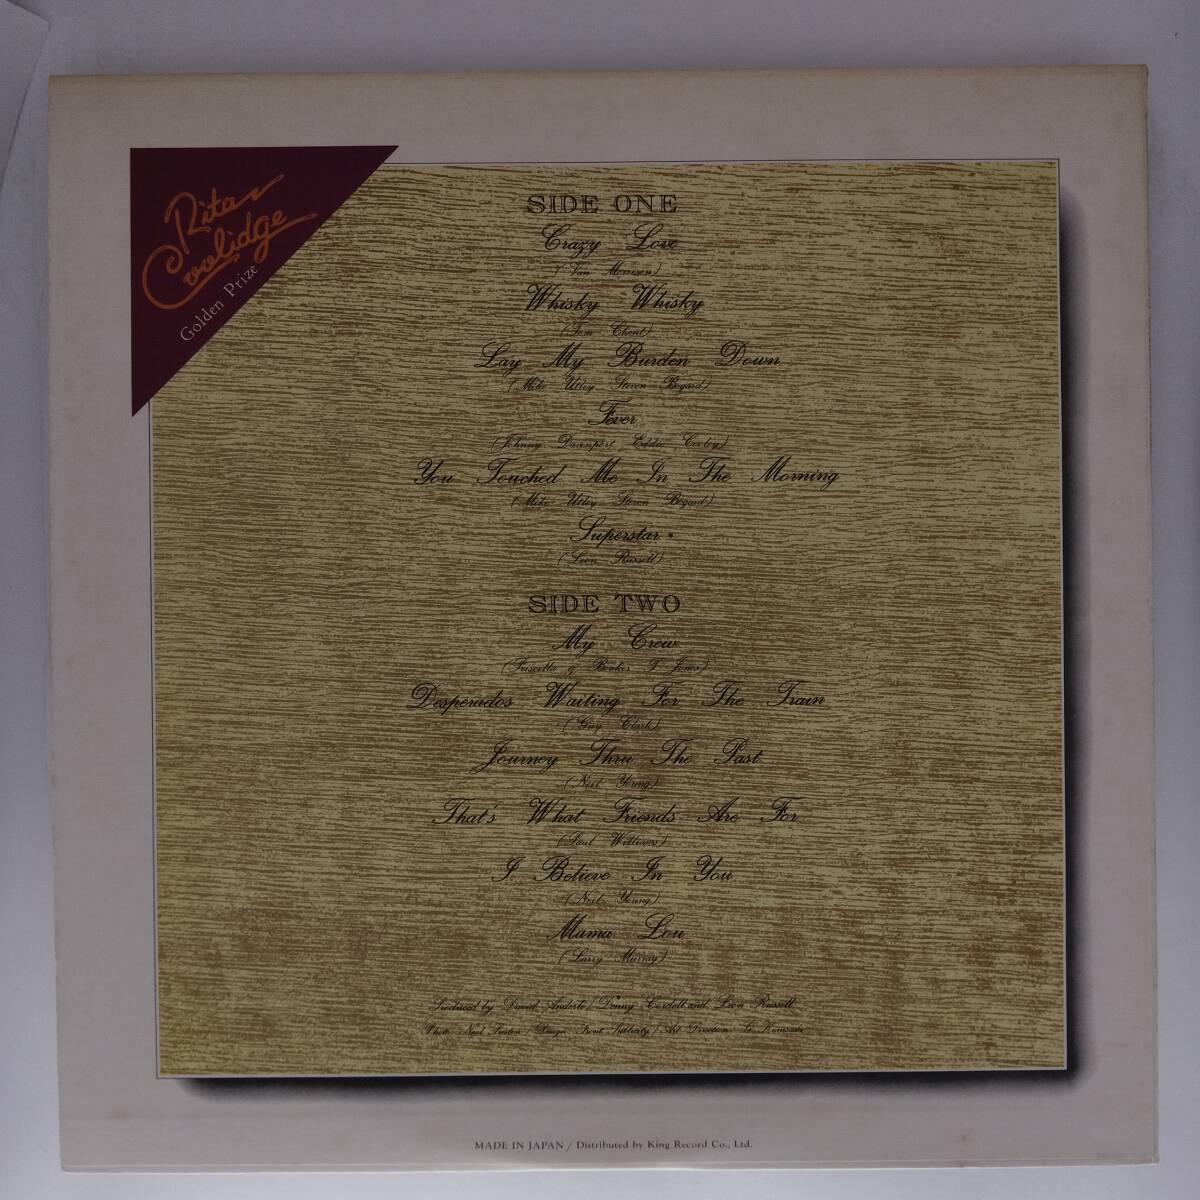 Rita
Coolidge
Golden Prize
SIDE ONE
Crazy Love
(Van Morrison)
Whisky Whisky
(Tom Ghent)
Lay My Burden Down
(Mike Utley Steven Begard)
Fever
(Johnny Davenport Eddie Cooley)
You Touched Me In The Morning
(Mike Utley Steven Begard)
Superstar *
(Leon Russell)
SIDE TWO
My Crew
(Priscilla & Booker T Jones)
Desperados Waiting For The Train
(Guy Clark)
Journey Thru The Past
(Neil Young)
That's What Friends Are For
(Paul Williams)
I Believe In You
(Neil Young)
Mama Lou
(Larry Murray)
Produced by David Anderle / Denny Cordell and Leon Russell
Design Front Publicity / Art Direction
MADE IN JAPAN / Distributed by King Record Co., Ltd.